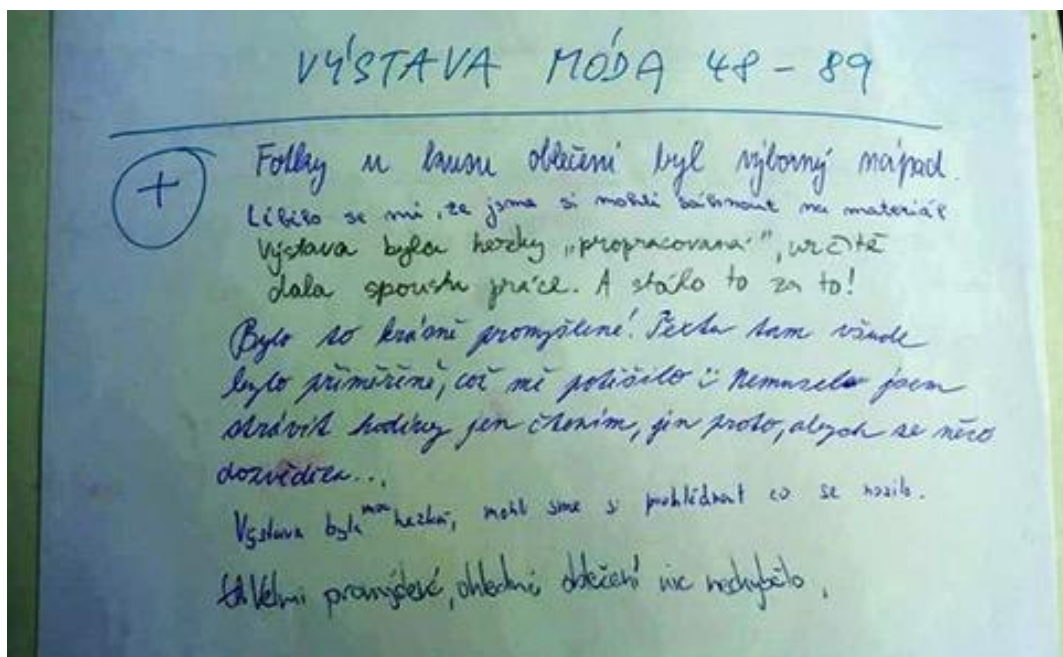 VÝSTAVA MÓDA 48 - 89
+
Fotky u kusu oblečení byl výborný nápad.
Líbilo se mi, že jsme si mohli sáhnout na materiál
Výstava byla hezky „propracovaná“, určitě
dala spoustu práce. A stálo to za to!
Bylo to krásně promyšlené! Textu tam všude
bylo přiměřeně, což mě potěšilo :) Nemusela jsem
strávit hodiny jen čtením, jen proto, abych se něco
dozvěděla...
Výstava byla moc hezká, mohl sme si prohlédnout co se nosilo.
Velmi promyšlené, ohledně oblečení nic nechybělo.